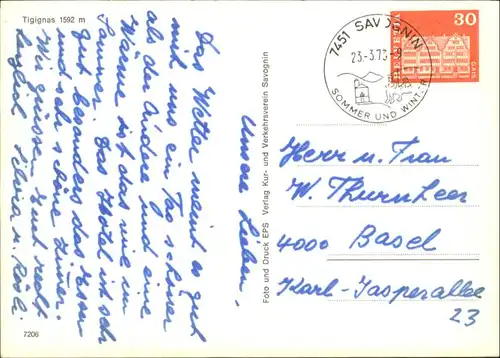 Tigignas 1592 m
Unsere Lieben,
Das Wetter meint es gut
mit uns ein Tag schöner
als der Andere und eine
Wärme ist das wie im
Sommer. Das Hotel ist sehr
gut besonders das Essen
und sehr schöne Zimmer.
Wir grüssen Euch recht
herzlich Silvia u. Rösli.
7206
Foto und Druck EPS Verlag Kur- und Verkehrsverein Savognin
7451 SAVOGNIN
23.-3.73
SOMMER UND WINTER
HELVETIA
30
GAIS
Herr u. Frau
W. Thurnheer
4000 Basel
Karl-Jasperallee
23